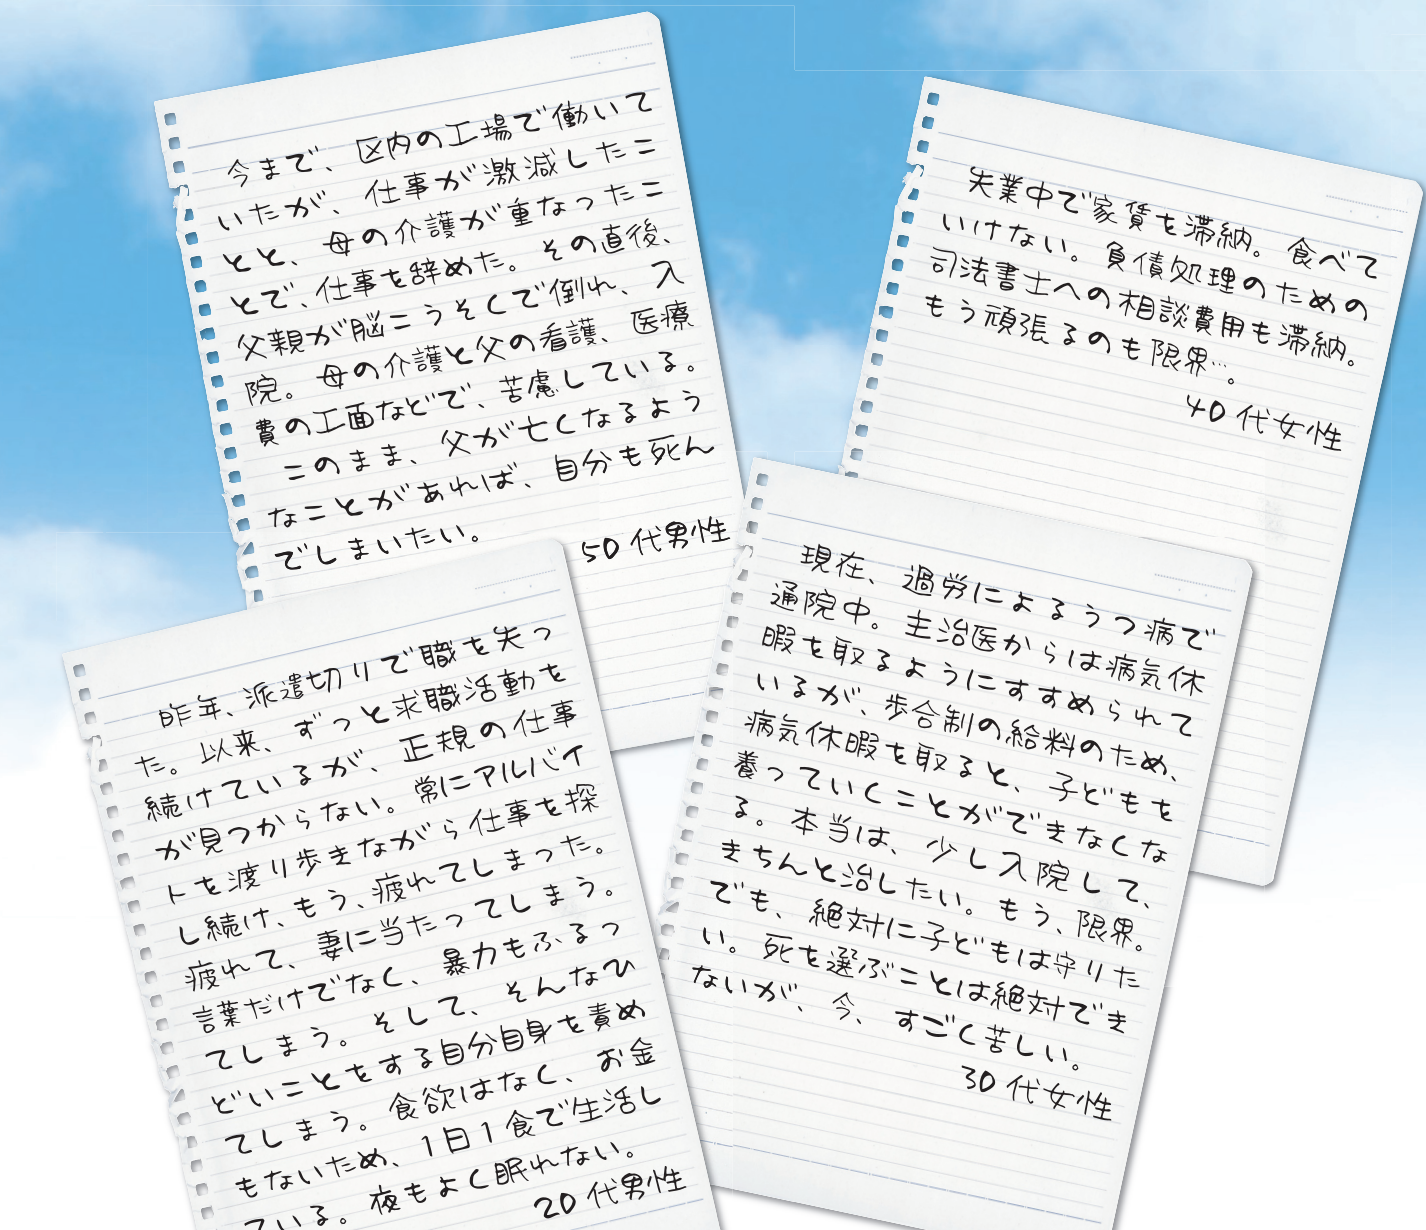 今まで、区内の工場で働いて
いたが、仕事が激減したこ
とと、母の介護が重なったこ
とで、仕事を辞めた。その直後、
父親が脳こうそくで倒れ、入
院。母の介護と父の看護、医療
費の工面などで、苦慮している。
このまま、父が亡くなるよう
なことがあれば、自分も死ん
でしまいたい。
50代男性
失業中で家賃を滞納。食べて
いけない。負債処理のための
司法書士への相談費用も滞納。
もう頑張るのも限界…。
40代女性
昨年、派遣切りで職を失っ
た。以来、ずっと求職活動を
続けているが、正規の仕事
が見つからない。常にアルバイ
トを渡り歩きながら仕事を探
し続け、もう、疲れてしまった。
疲れて、妻に当たってしまう。
言葉だけでなく、暴力もふるっ
てしまう。そして、そんなひ
どいことをする自分自身を責め
てしまう。食欲はなく、お金
もないため、1日1食で生活し
ている。夜もよく眠れない。
20代男性
現在、過労によるうつ病で
通院中。主治医からは病気休
暇を取るようにすすめられて
いるが、歩合制の給料のため、
病気休暇を取ると、子どもを
養っていくことができなくな
る。本当は、少し入院して、
きちんと治したい。もう、限界。
でも、絶対に子どもは守りた
い。死を選ぶことは絶対でき
ないが、今、すごく苦しい。
30代女性